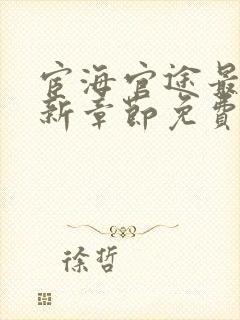 宦海官途最
新章節免費
徐哲